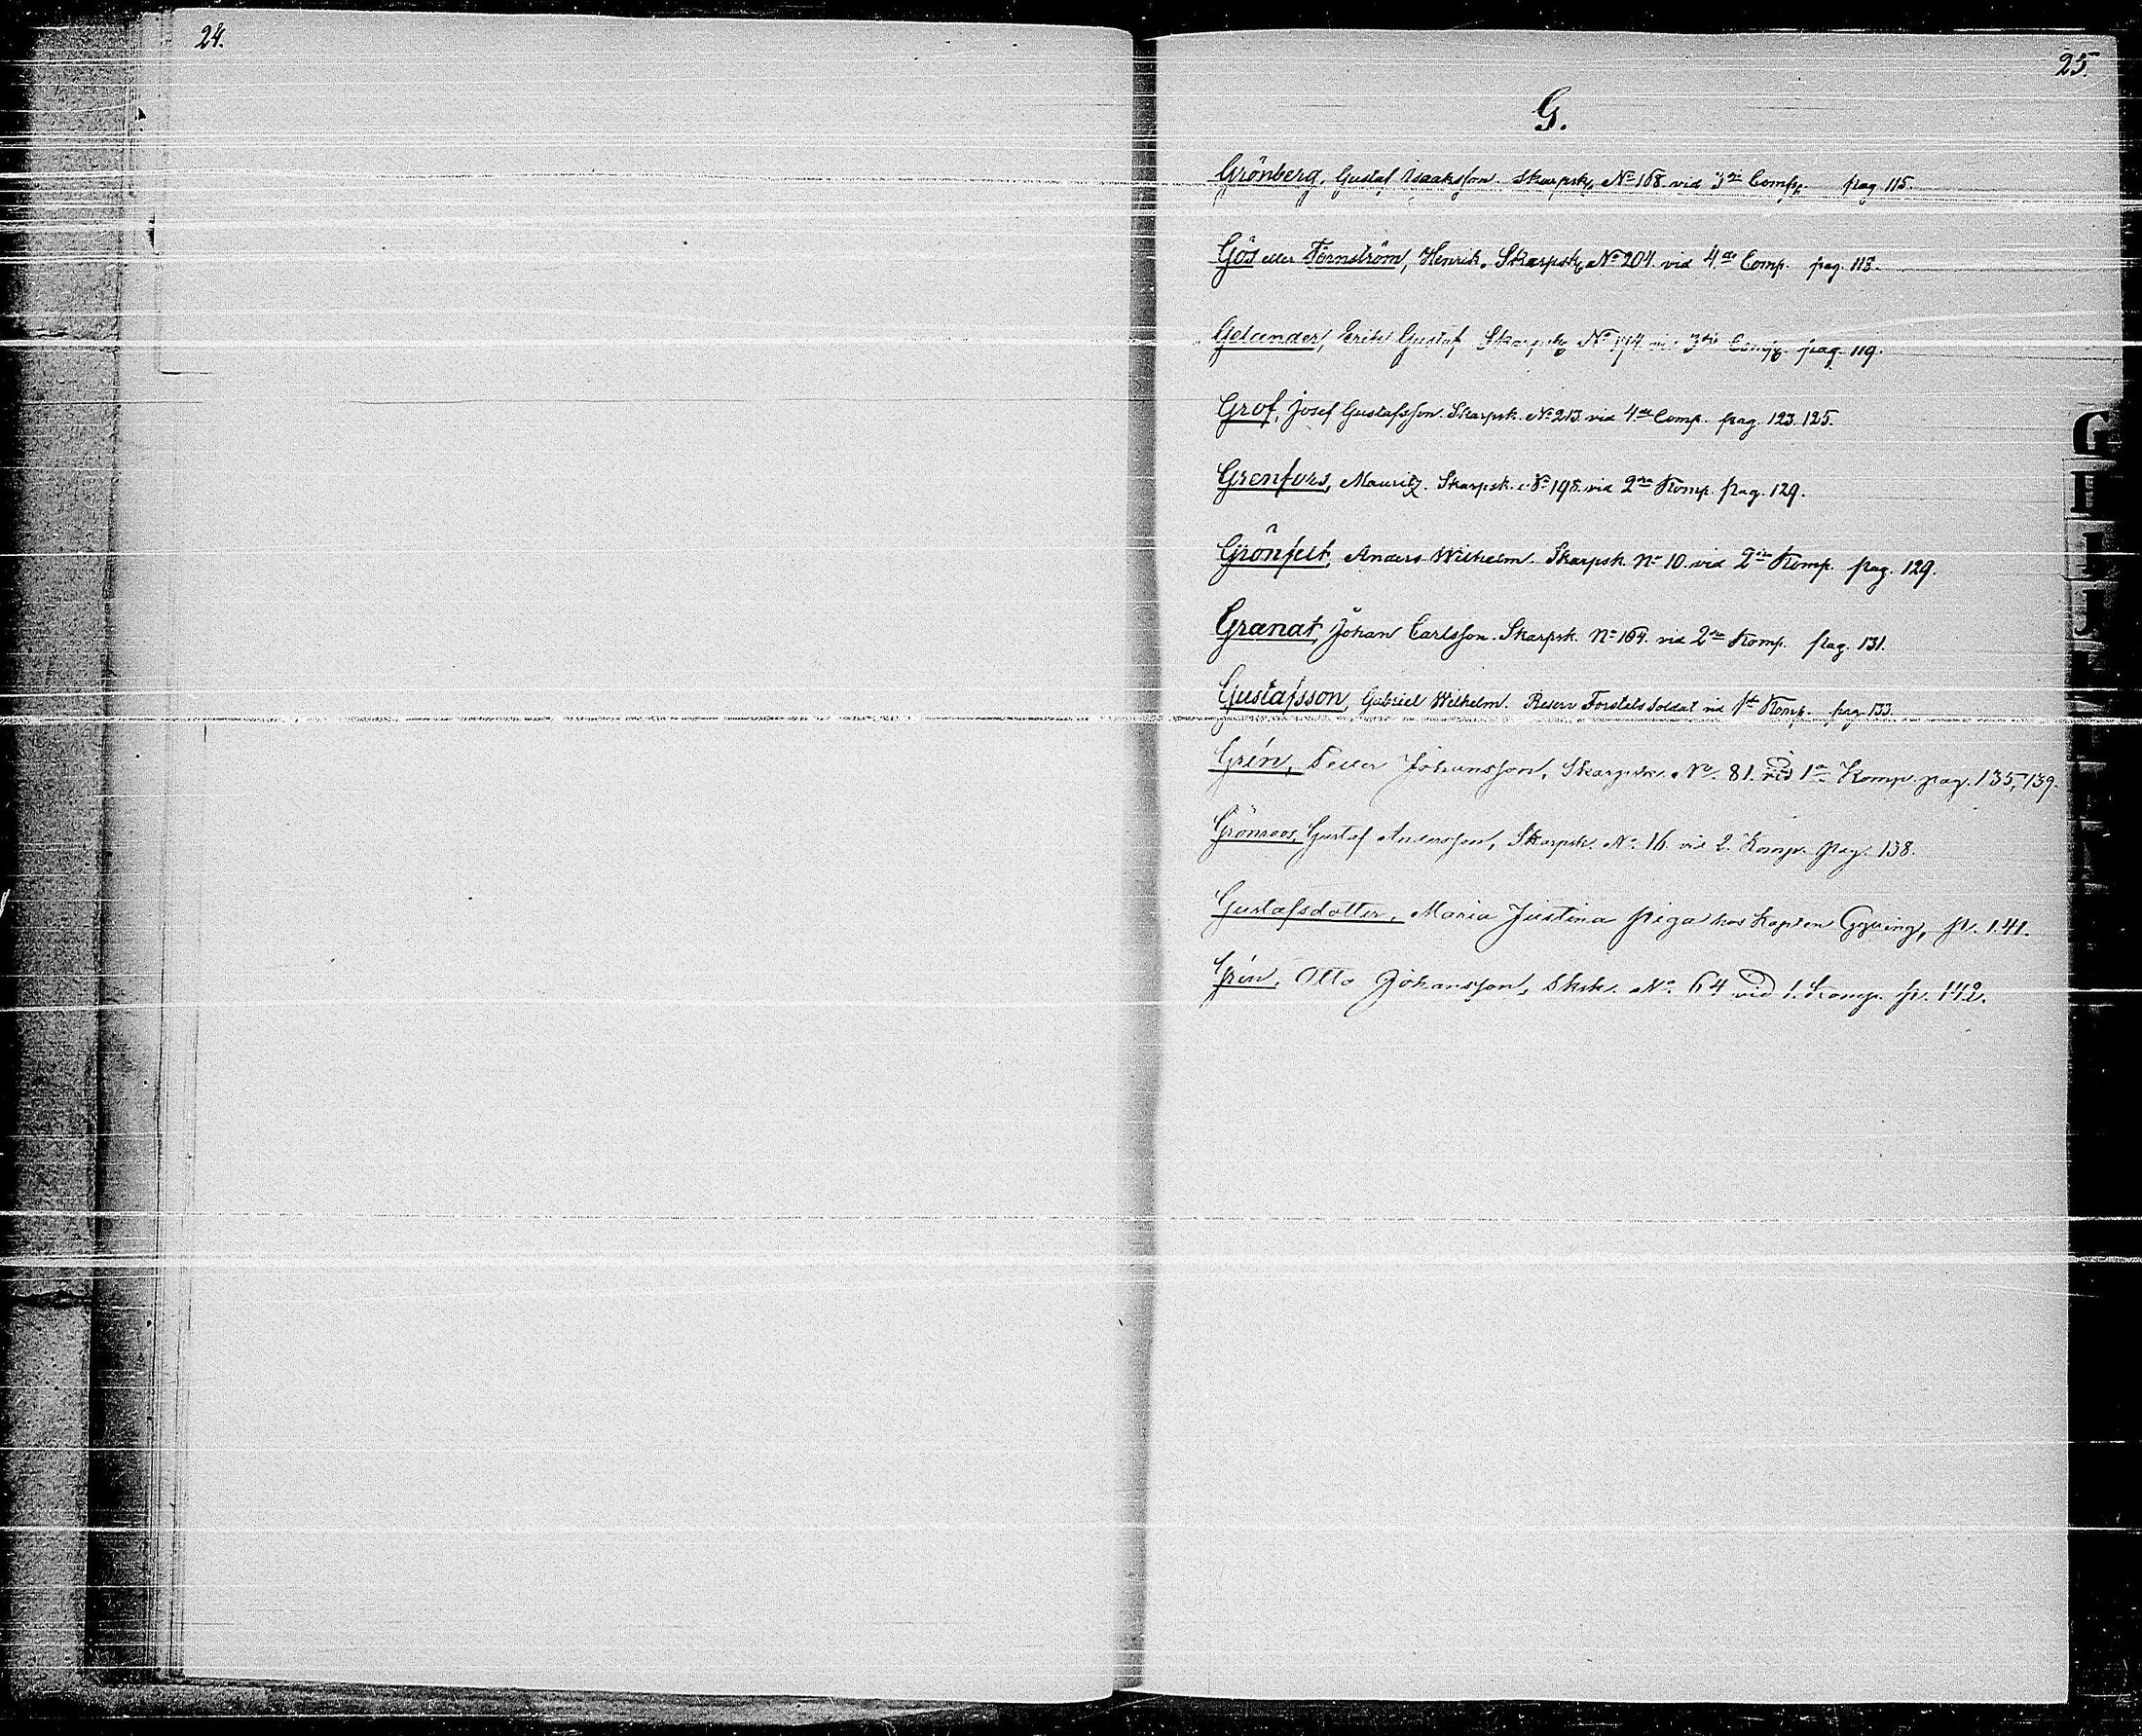 24.
25.
G.
Grönberg, Gustaf Isaaksson. Skarpsk. No 168. vid 3de Comp. pag 115.
Gös eller Törnström, Henrik. Skarpsk. No 204. vid 4de Comp. pag. 118.
Gelander, Erik Gustaf Skarpsk. No 194 vid 3die Comp. pag. 119.
Grof, Josef Gustafsson. Skarpsk. No 213. vid 4de Comp. pag. 123. 125.
Grenfors, Mauritz. Skarpsk. No 198. vid 2dra Komp. pag. 129.
Grönfelt, Anders Wilhelm. Skarpsk. No 10. vid 2dra Komp. pag. 129.
Granat, Johan Carlsson. Skarpsk. No 164. vid 2dra Komp. pag. 131.
Gustafsson, Gabriel Wilhelm. Reserv Forstels Soldat vid 1sta Komp. pag. 133.
Grén, Johansson, Skarpsk. No. 81. vid 1a Komp. pag. 135, 139.
Grönroos, Gustaf Andersson, Skarpsk. No. 16. vid 2. Komp. pag. 138.
Gustafsdotter, Maria Justina piga hos Kapten p. 141.
Grén, Otto Johansson, Sksk. No. 64 vid 1. Komp. p. 142.
G
H
I
J